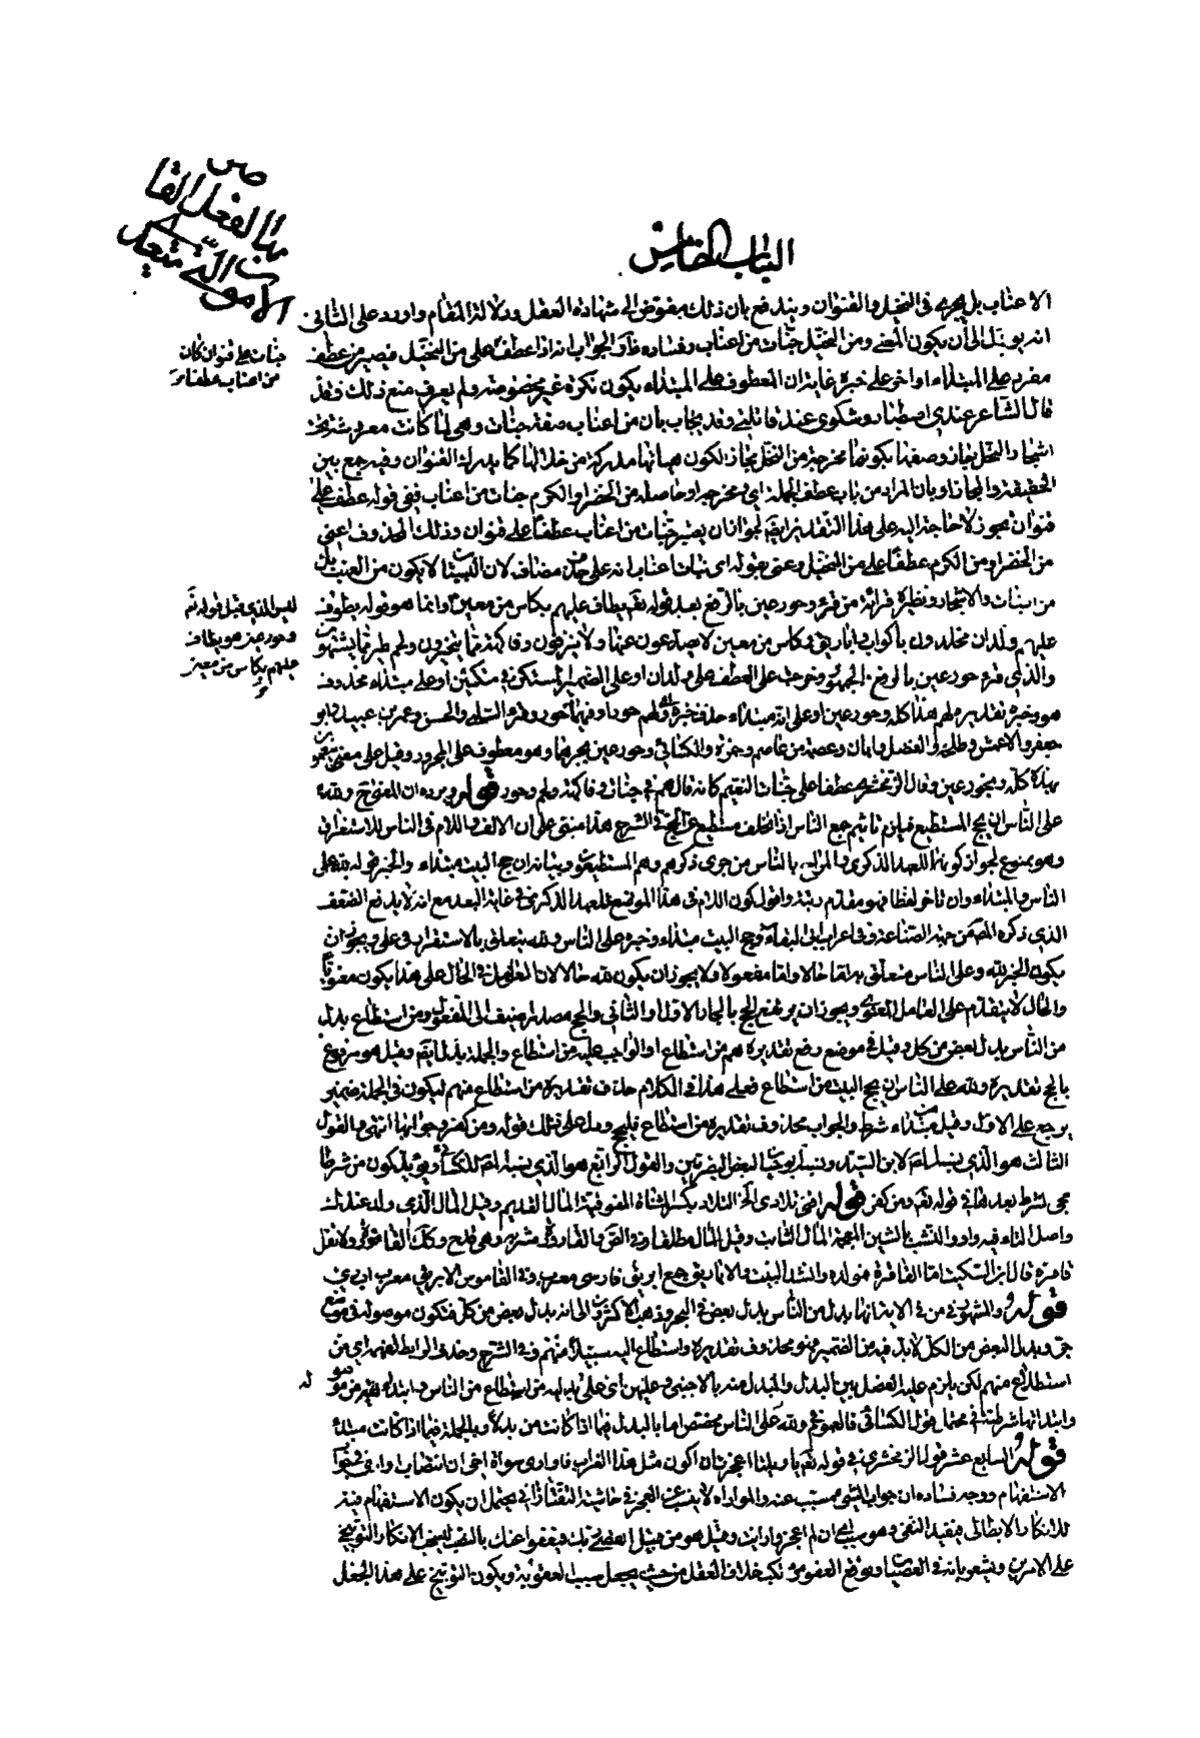 الباب الخامس
الاعناب بل يجرى فى النخيل والقنوان ويندفع بان ذلك مفوض الى شهادة العقل ودلالة المقام واورد على الثانى
انه يوّل الى أن يكون المعنى ومن النخيل جنات من اعناب وفساده ظاهر والجواب انه اذا عطف على من النخيل فيصير من عطف
مفرد على المبتداء واخر على خبره غايته ان المعطوف على المبتداء يكون نكرة غير مخصوصة ولم يعرف منع ذلك وقد
قال الشاعر عندى اصطبار وشكوى عند قاتلتى وقد يجاب بان من اعناب صفة جنات وهى لما كانت معروشة تحت
اشجار النخل جاز وصفها بكونها مخرجة من النخل مجازا لكون
الحقيقة والمجاز او بان المراد من باب عطف الجملة اى ومخرجة او حاصلة من الخضر او الكرم جنات من اعناب ففى قوله عطف على
قنوان تجوز لا حاجة اليه على هذا التقدير ايضا لجواز ان يصير جنات من اعناب عطفا على قنوان وذلك المحذوف اعنى
من الخضر او من الكرم عطفا على من النخيل وعنى بقوله اى نبات اعناب انه على حذف مضاف لان البستان لا يكون من العنب بل
من النبات والاشجار ونظيره قراءة من قرء وحور عين بالرفع بعد قوله تع يطاف عليهم بكاس من معين وانما هو قوله يطوف
عليهم ولدان مخلدون باكواب واباريق وكاس من معين لا يصدعون عنها ولا ينزفون وفاكهة مما يتخيرون ولحم طير مما يشتهون
والذى قرء حور عين بالرفع الجمهور وخرجت على العطف على ولدان او على الضمير المستكن فى متكئين او على مبتداء محذوف
هو وخبره تقديره لهم هذا كله وحور عين او على انه مبتداء حذف خبره اى ولهم حور او فيها حور وقرء السلمى والحسن وعمر بن عبيد وابو
جعفر والاعمش وطلحة والفضل وابان وعصمة عن عاصم وحمزة والكسائى وحور عين بجرهما وهو معطوف على المجرور وقيل على معنى
بهذا كله وبحور عين وقال الزمخشرى عطفا على جنات النعيم كانه قال هم فى جنات وفاكهة ولحم وحور قوله ويرده ان المعنى ح ولله
على الناس ان يحج المستطيع فيلزم تاثيم جميع الناس اذا تخلف مستطيع عن الحج فى الشرح هذا مبنى على ان الالف واللام فى الناس للاستغراق
وهو ممنوع لجواز كونها للعهد الذكرى والمراد بالناس من جرى ذكرهم وهم المستطيعون وبيانه ان حج البيت مبتداء والخبر قوله لله على
الناس والمبتداء وان تاخر لفظا فهو مقدم رتبة واقول كون اللام فى هذا الموضع للعهد الذكرى فى غاية البعد مع انه لا يدفع الضعف
الذى ذكره المص من جهة الصناعة وفى اعراب ابى البقاء وحج البيت مبتداء وخبره على الناس ولله يتعلق بالاستقرار فى على ويجوز ان
يكون الخبر لله وعلى الناس متعلق به اما حالا واما مفعولا ولا يجوز ان يكون لله حالا لان العامل فى الحال على هذا يكون معنويا
والحال لا يتقدم على العامل المعنوى ويجوز ان يرتفع الحج بالجار الاول او الثانى والحج مصدر اضيف الى المفعول ومن استطاع بدل
من الناس بدل بعض من كل وقيل فى موضع رفع تقديره هم من استطاع او الواجب عليه من استطاع والجملة بدل ايضا وقيل هو مرفوع
بالحج تقديره ولله على الناس ان يحج البيت من استطاع فعلى هذا فى الكلام حذف تقديره من استطاع منهم ليكون فى الجملة ضمير
يرجع على الاول وقيل مبتداء شرط والجواب محذوف تقديره من استطاع فليحج ودل على ذلك قوله ومن كفر وجوابها انتهى والقول
الثالث هو الذى نسبه المص لابن السيد ونسبه ابو حيان لبعض البصريين والقول الرابع هو الذى نسبه المص للكسائى ويؤيد كون من شرطا
مجى شرط بعدها فى قوله تع ومن كفر قوله افنى تلادى الخ التلاد بكسر المثناة الفوقية المال القديم وقيل المال الذى ولد عندك
واصل التاء فيه واو والنشب بالشين المعجمة المال الثابت وقيل المال مطلقا
قاقزة قال ابن السكيت اما القاقزة فمولدة والاباريق جمع ابريق فارسى معرب وفى القاموس الابريق معرب اب رى
قوله والمشهور فى من فى الاية انها بدل من الناس بدل بعض فى البحر وذهب الاكثرون الى انه بدل بعض من كل فتكون موصولة فى موضع
جر وبدل البعض من الكل لابد فيه من الضمير فهو محذوف تقديره واستطاع اليه سبيلا منهم وفى الشرح وحذف الرابط لفهمه اى من
استطاع منهم لكن يلزم عليه الفصل بين البدل والمبدل منه بالاجنبى
قوله السابع عشر قول الزمخشرى فى قوله تع يا ويلتا اعجزت ان اكون مثل هذا الغراب فاوارى سوأة اخى ان انتصاب اوارى فى جواب
الاستفهام ووجه فساده ان جواب الشى مسبب عنه والمواراة لا يتسبب عن العجز فى حاشية التفتازانى يحتمل ان يكون الاستفهام فيه
للانكار الابطالى فيفيد النفى وهو سبب اى ان لم اعجز واريت وقيل هو من قبيل اتعصى ربك فيعفو عنك بالنصب لينصب الانكار التوبيخى
على الامرين ويشعر بانه فى العصيان وتوقع العفو مرتكب خلاف العقل من حيث يجعل سبب العقوبة ويكون التوبيخ على هذا الجعل
جنات على قنوان كان
من اعناب عطفا
ليس الذى قبل قوله تع
وحور عين هو يطاف
عليهم بكاس من معين